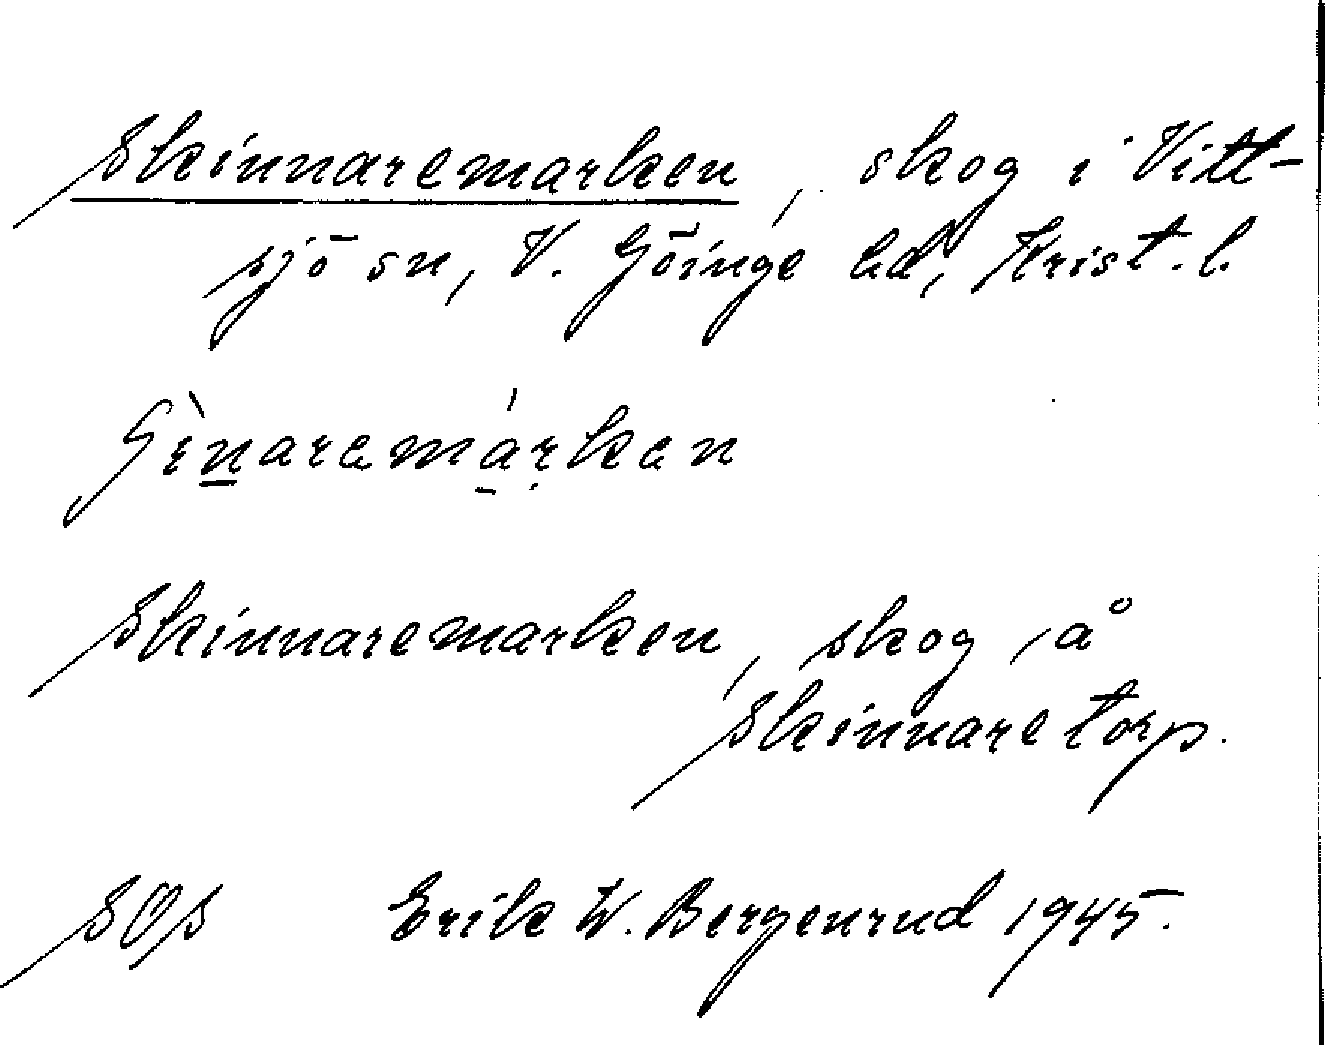 Skinnaremarken, skog i Vitt-
sjö sn, V. Göinge hd, Krist. l.
Skinnaremarken, skog å
Skinnaretorp.
SOS Erik W. Bergenrud 1945.